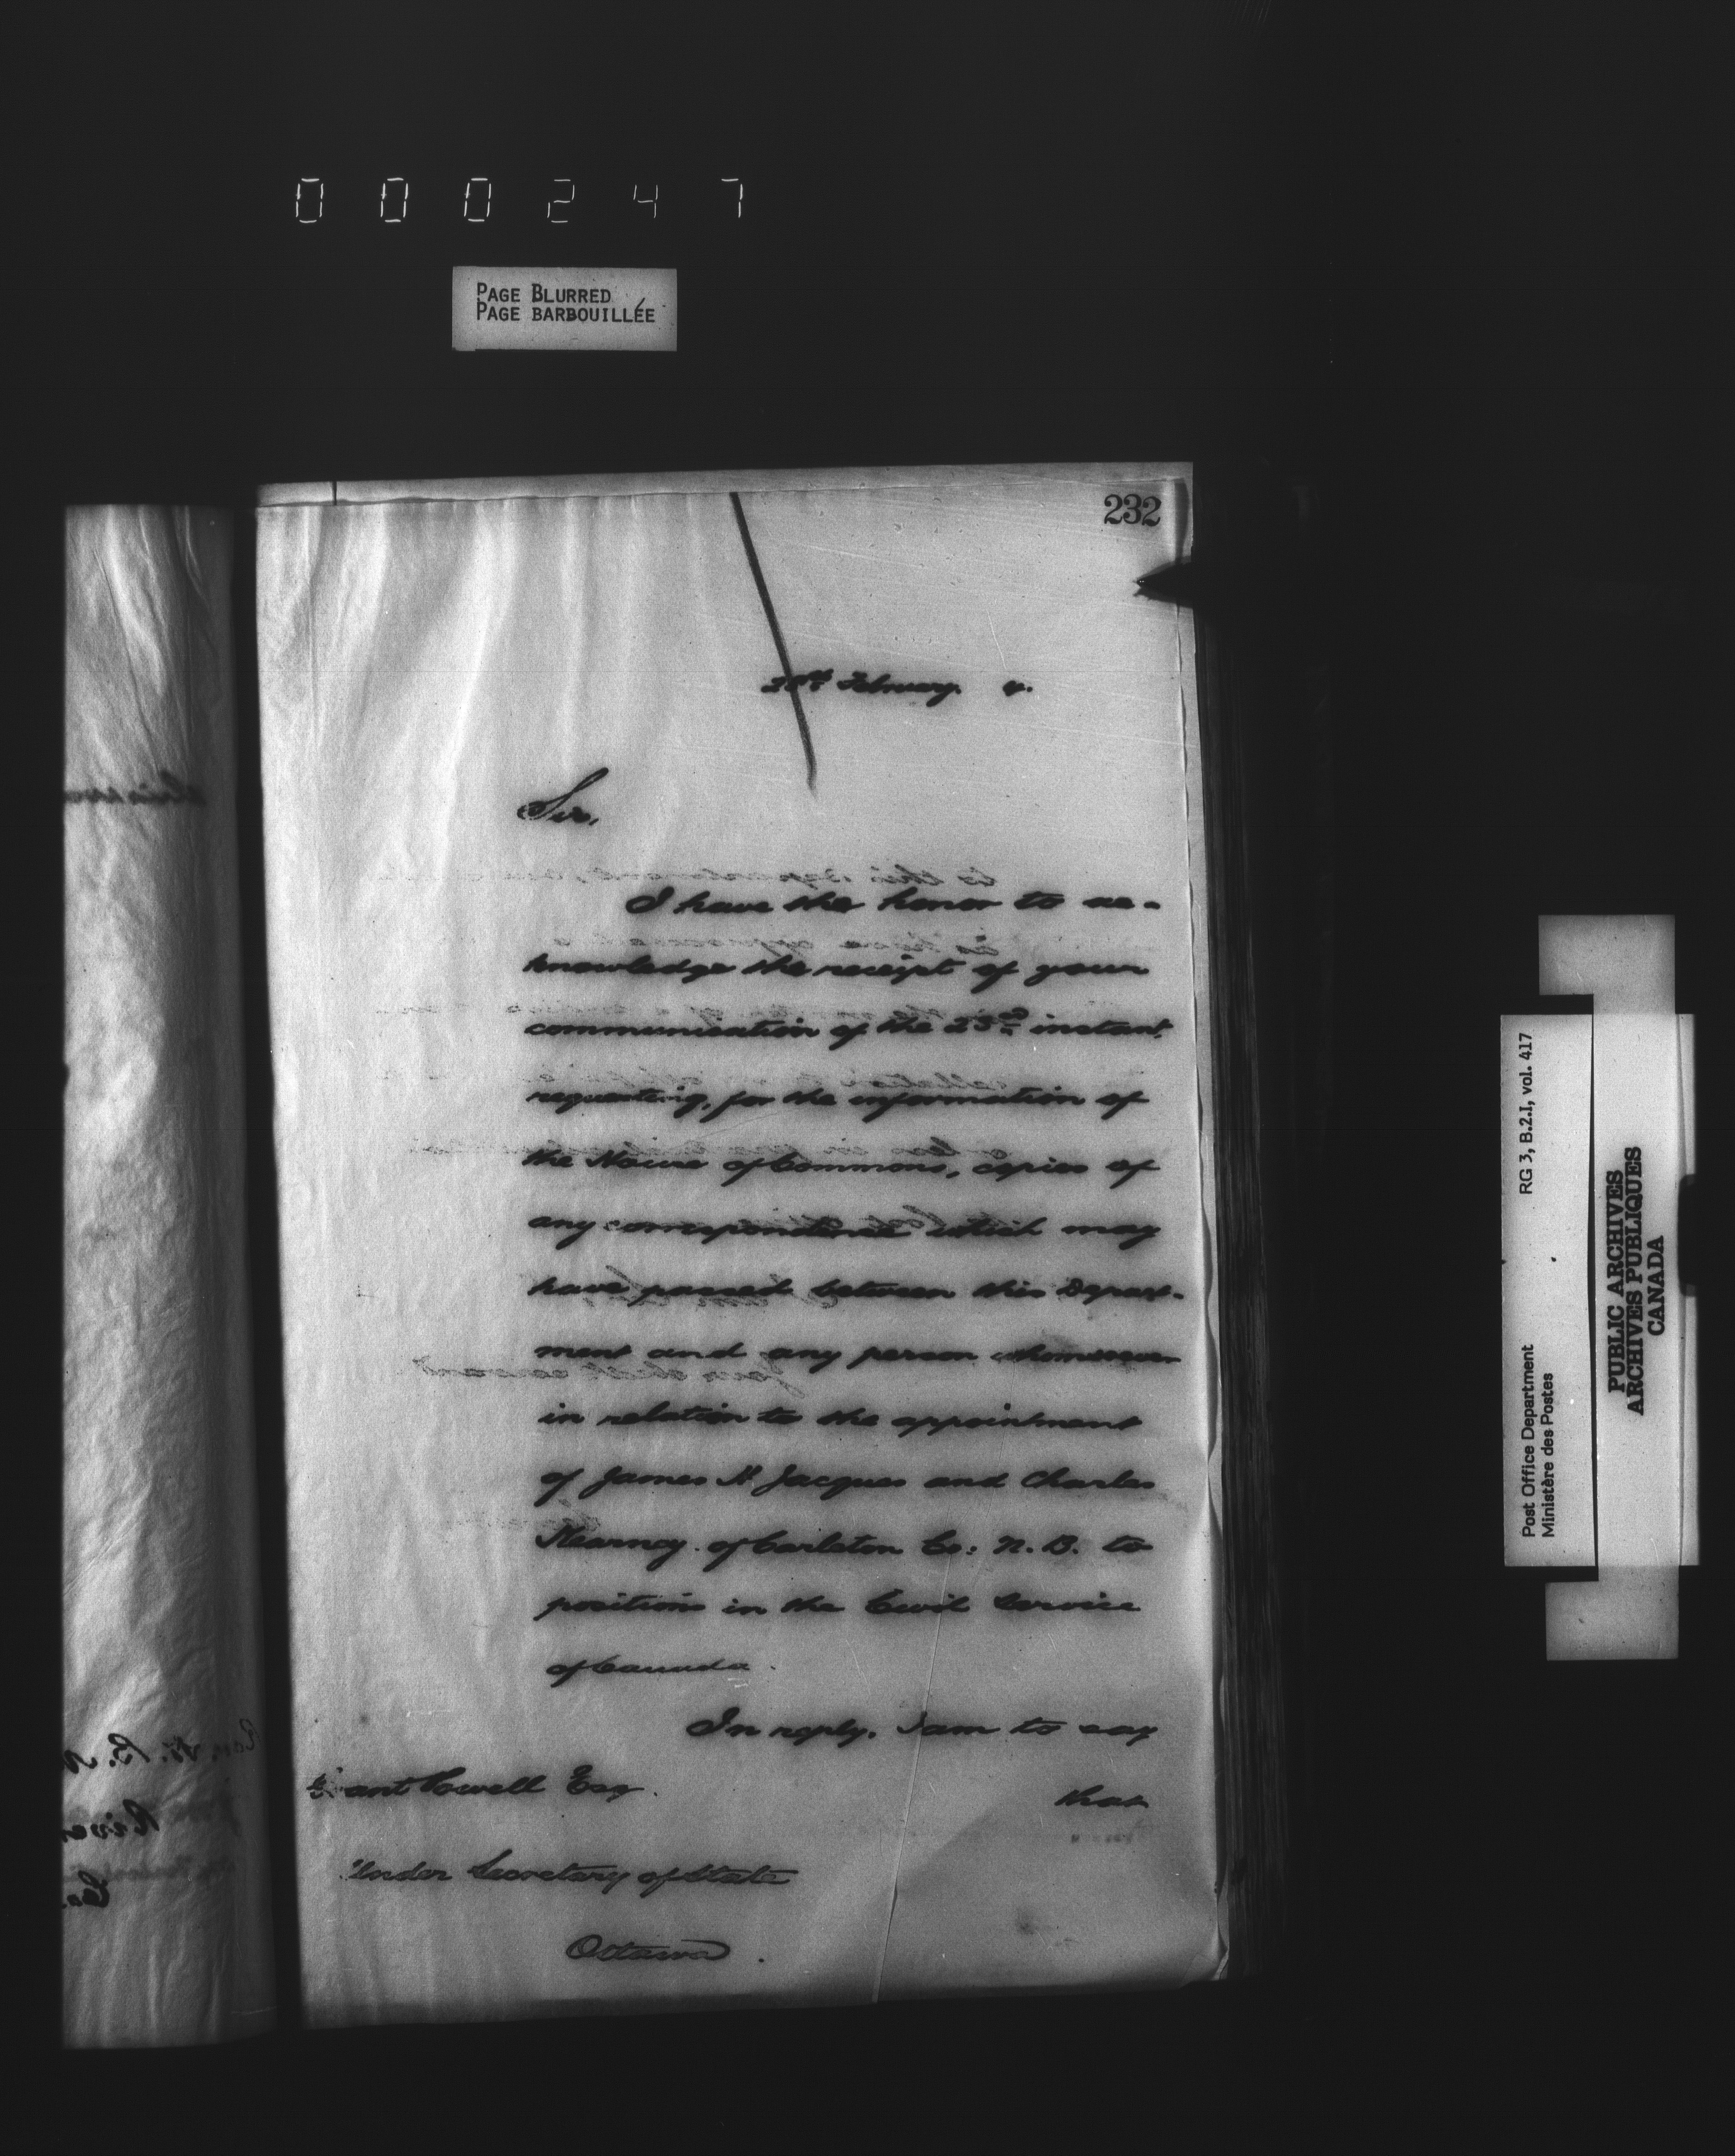 000247
PAGE BLURRED
PAGE BARBOUILLÉE
232
February
Sir,
I have the honor to ac-
knowledge the receipt of your
communication of the 23rd instant,
requesting, for the information of
the House of Commons, copies of
any correspondence which may
have passed between this Depart-
ment and any person whomsoever
in relation to the appointment
of James H Jacques and Charles
Kearney of Carleton Co: N.B. to
positions in the Civil Service
of Canada.
In reply, I am to say
that
Powell Esq.
Under Secretary of State
Ottawa.
Post Office Department
Ministère des Postes
RG 3, B.2.I, vol. 417
PUBLIC ARCHIVES
ARCHIVES PUBLIQUES
CANADA